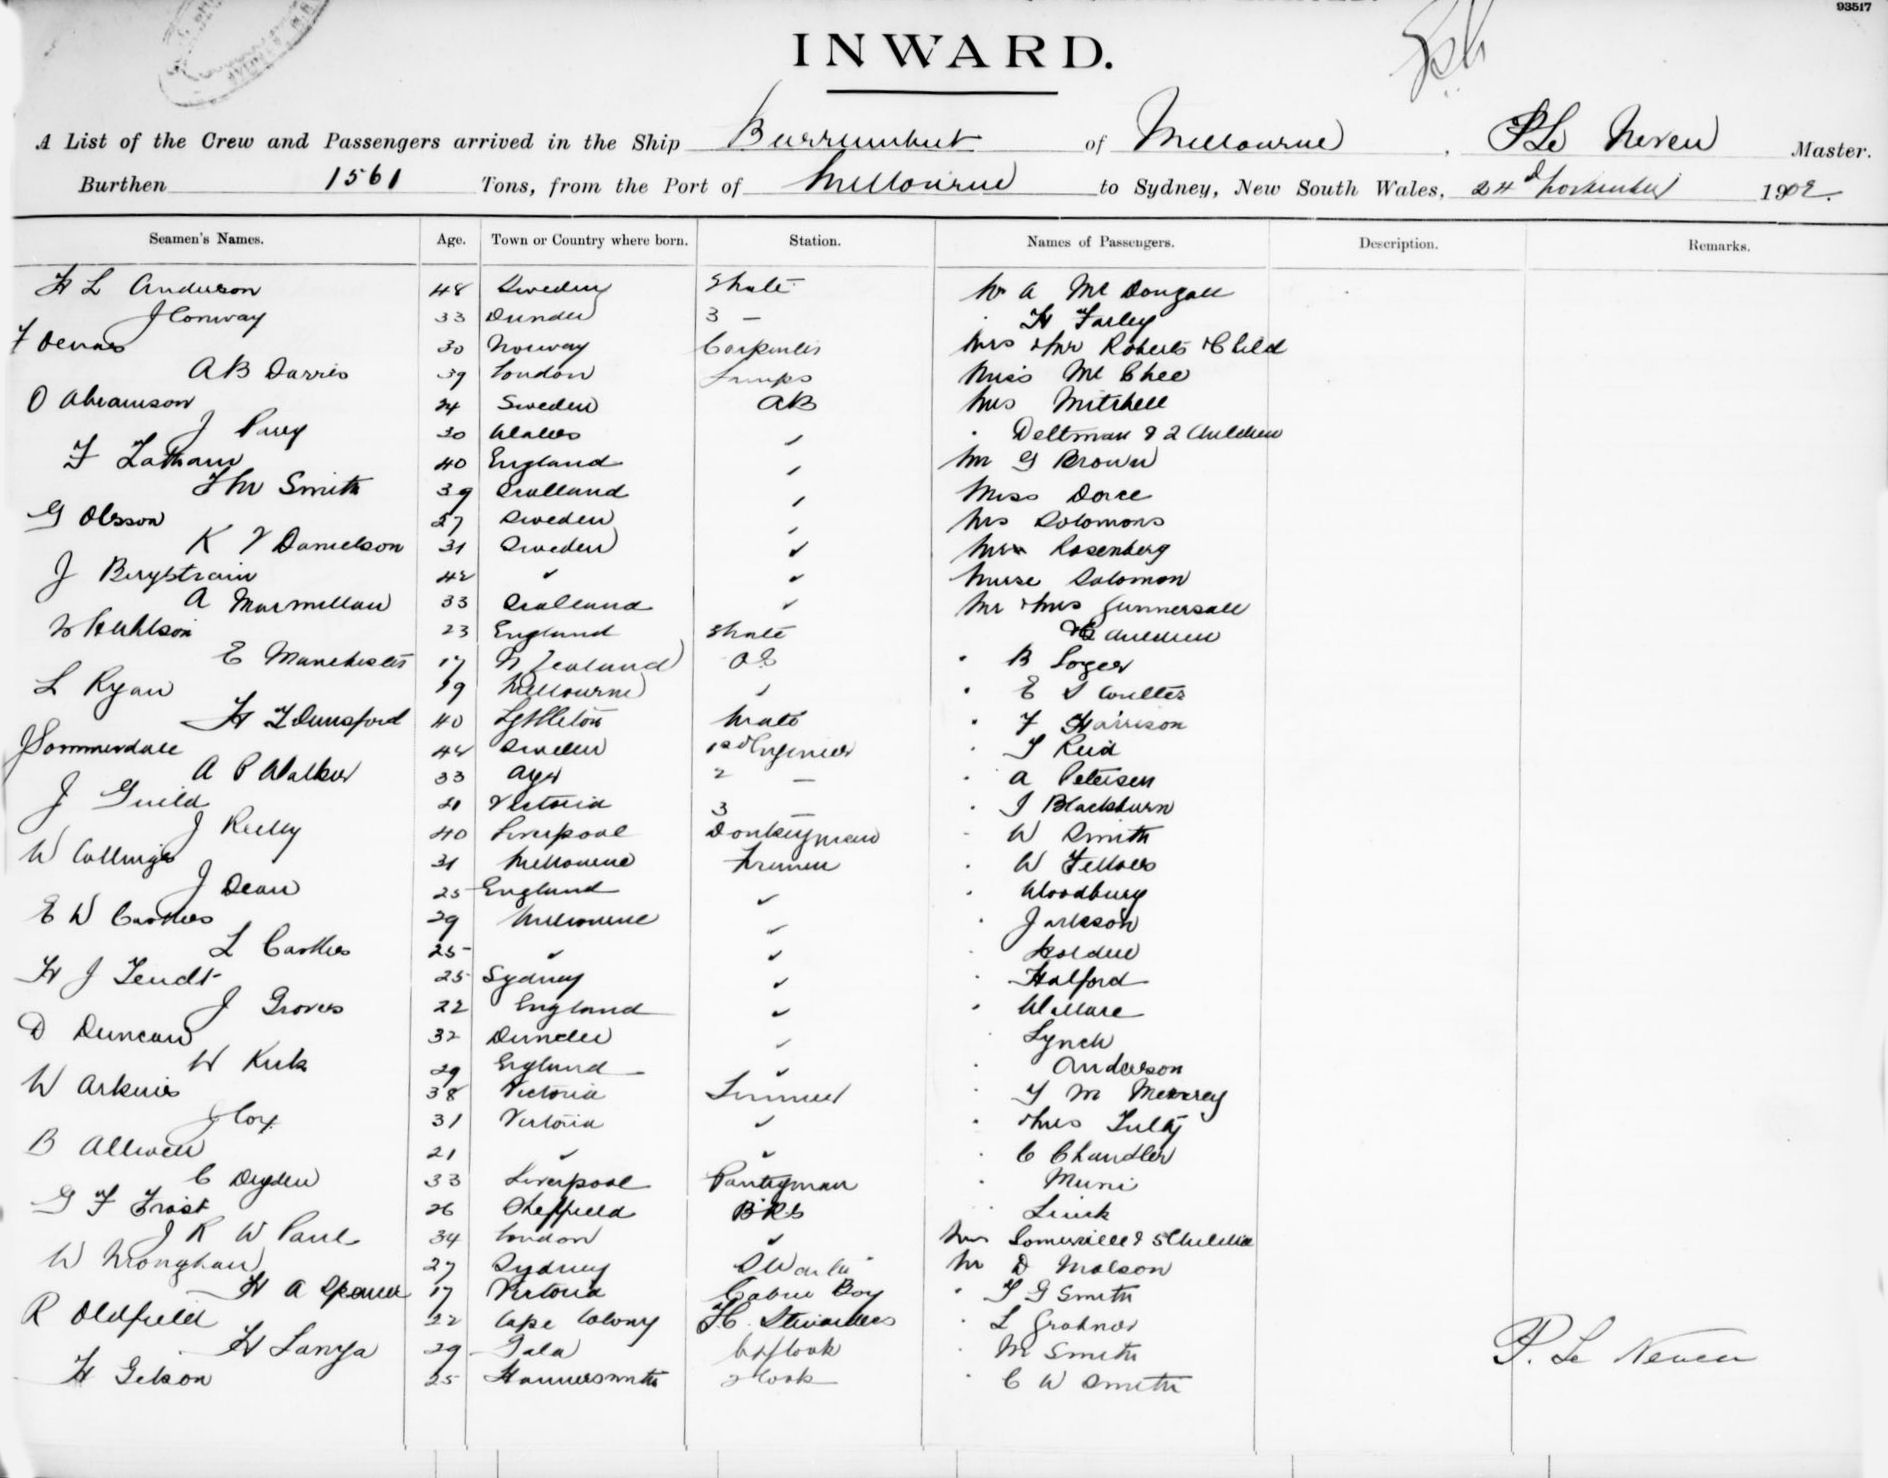 93517
INWARD.
A List of the Crew and Passengers arrived in the Ship Burrumbeet of Melbourne, P Le Neveu Master.
Burthen 1561 Tons, from the Port of Melbourne to Sydney, New South Wales, 24th November 1902.
Seamen's Names. Age. Town or Country where born. Station. Names of Passengers. Description. Remarks.
H L Anderson 48 Sweden 2 Mate Mr A Mc Dougall
J Conway 33 Dundee 3 — H Farley
F 30 Norway Carpenter Mrs & Mr Roberts & Child
A B Davies 39 London Lamps Miss Mc Ghee
O Abramson 24 Sweden AB Mrs Mitchell
J Parry 30 Wales ✓ Deltman & 2 Children
F Latham 40 England ✓ Mr G Brown
J M Smith 39 Scotland ✓ Miss Dorce
G Olsson 27 Sweden ✓ Mrs Solomons
K V Danielson 31 Sweden ✓ Mrs Rosenberg
J Bergstrom 42 ✓ ✓ Nurse Solomon
A Macmillan 33 Scotland ✓ Mr & Mrs Gunnersall
23 England & Children
E Manchester 17 N Zealand OS B
L Ryan 19 Melbourne ✓ E S Coulter
H F Dunsford 40 Lyttleton Mate F Harrison
J Sommerdale 44 Sweden 1st Engineer T Reid
A P Walker 33 Ayr 2 — A Petersen
J Guild 21 Victoria 3 — J Blackburn
J Reilly 40 Liverpool Donkeyman W Smith
W Collings 31 Melbourne Firemen W Fellows
J Dean 25 England ✓ Woodbury
E W Carthers 29 Melbourne ✓ Jackson
L Carthers 25 ✓ ✓ Holden
H J Tendt 25 Sydney ✓ Halford
J Groves 22 England ✓ Wallace
D Duncan 32 Dundee ✓ Lynch
W Kirk 29 England ✓ Anderson
W 38 Victoria Trimmer T M
J Cox 31 Victoria ✓ & Mrs Tully
B Allwell 21 ✓ ✓ C Chandler
C Dryden 33 Liverpool Pantryman
G F Frost 26 Sheffield
J R W Paul 34 London ✓ Mrs Somerville & 5 Children
W Monghan 27 Sydney Mr D Malson
H A Spencer 17 Victoria Cabin Boy T G Smith
R Oldfield 22 Cape Colony L
H Lanya 29 Ch Cook M Smith
H Gibson 25 Hammersmith 2 Cook C W Smith
P. Le Neveu